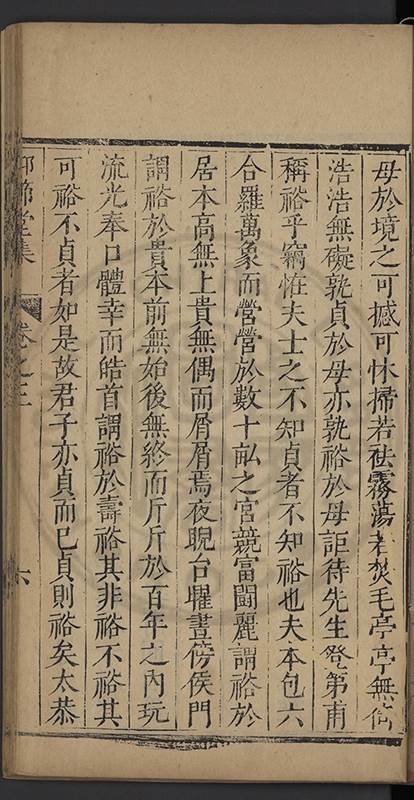 母於境之可撼可怵掃若祛霧蕩若焚毛亭亭無倚
浩浩無礙孰貞於母亦孰裕於母詎待先生登第甫
稱裕乎竊恠夫士之不知貞者不知裕也夫本包六
合羅萬象而營營於數十畆之宮競富鬬麗謂裕於
居本高無上貴無偶而屑屑焉夜睨台躔晝傍侯門
謂裕於貴本前無始後無終而斤斤於百年之內玩
流光奉口體幸而皓首謂裕於壽裕其非裕不裕其
可裕不貞者如是故君子亦貞而已貞則裕矣太恭
堂集
卷之三
六